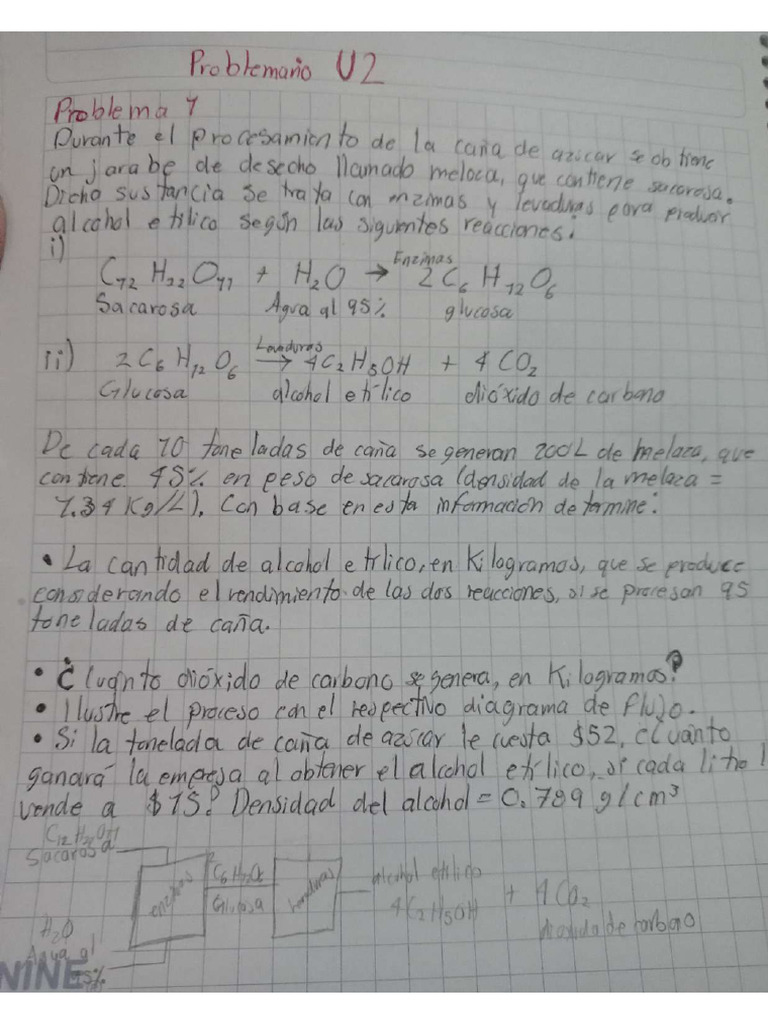 Problemario U2
Problema 1
Durante el procesamiento de la caña de azúcar se obtiene
un jarabe de desecho llamado meloca, que contiene sacarosa.
Dicho sustancia se trata con enzimas y levaduras para producir
alcohol etílico según las siguientes reacciones:
i)
C12 H22 O11 + H2O → Enzimas 2C6 H12 O6
Sacarosa Agua al 95% glucosa
ii) 2C6 H12 O6 Levaduras → 4C2 H5OH + 4 CO2
Glucosa alcohol etílico dióxido de carbono
De cada 10 toneladas de caña se generan 200L de melaza, que
contiene 45% en peso de sacarosa (densidad de la melaza =
1.34 Kg/L), Con base en esta información determine:
• La cantidad de alcohol etílico, en Kilogramos, que se produce
considerando el rendimiento de las dos reacciones, si se procesan 95
toneladas de caña.
• ¿Cuánto dióxido de carbono se genera, en Kilogramos?
• Ilustre el proceso con el respectivo diagrama de flujo.
• Si la tonelada de caña de azúcar le cuesta $52, cuánto
ganará la empresa al obtener el alcohol etílico, si cada litro l
vende a $15? Densidad del alcohol = 0.789 g/cm3
C12 H22 O11
Sacarosa
enzimas
Glucosa
levaduras
alcohol etílico
4C2H5OH
+ 4CO2
dioxido de carbono
H2O
Agua al
95%
NINE